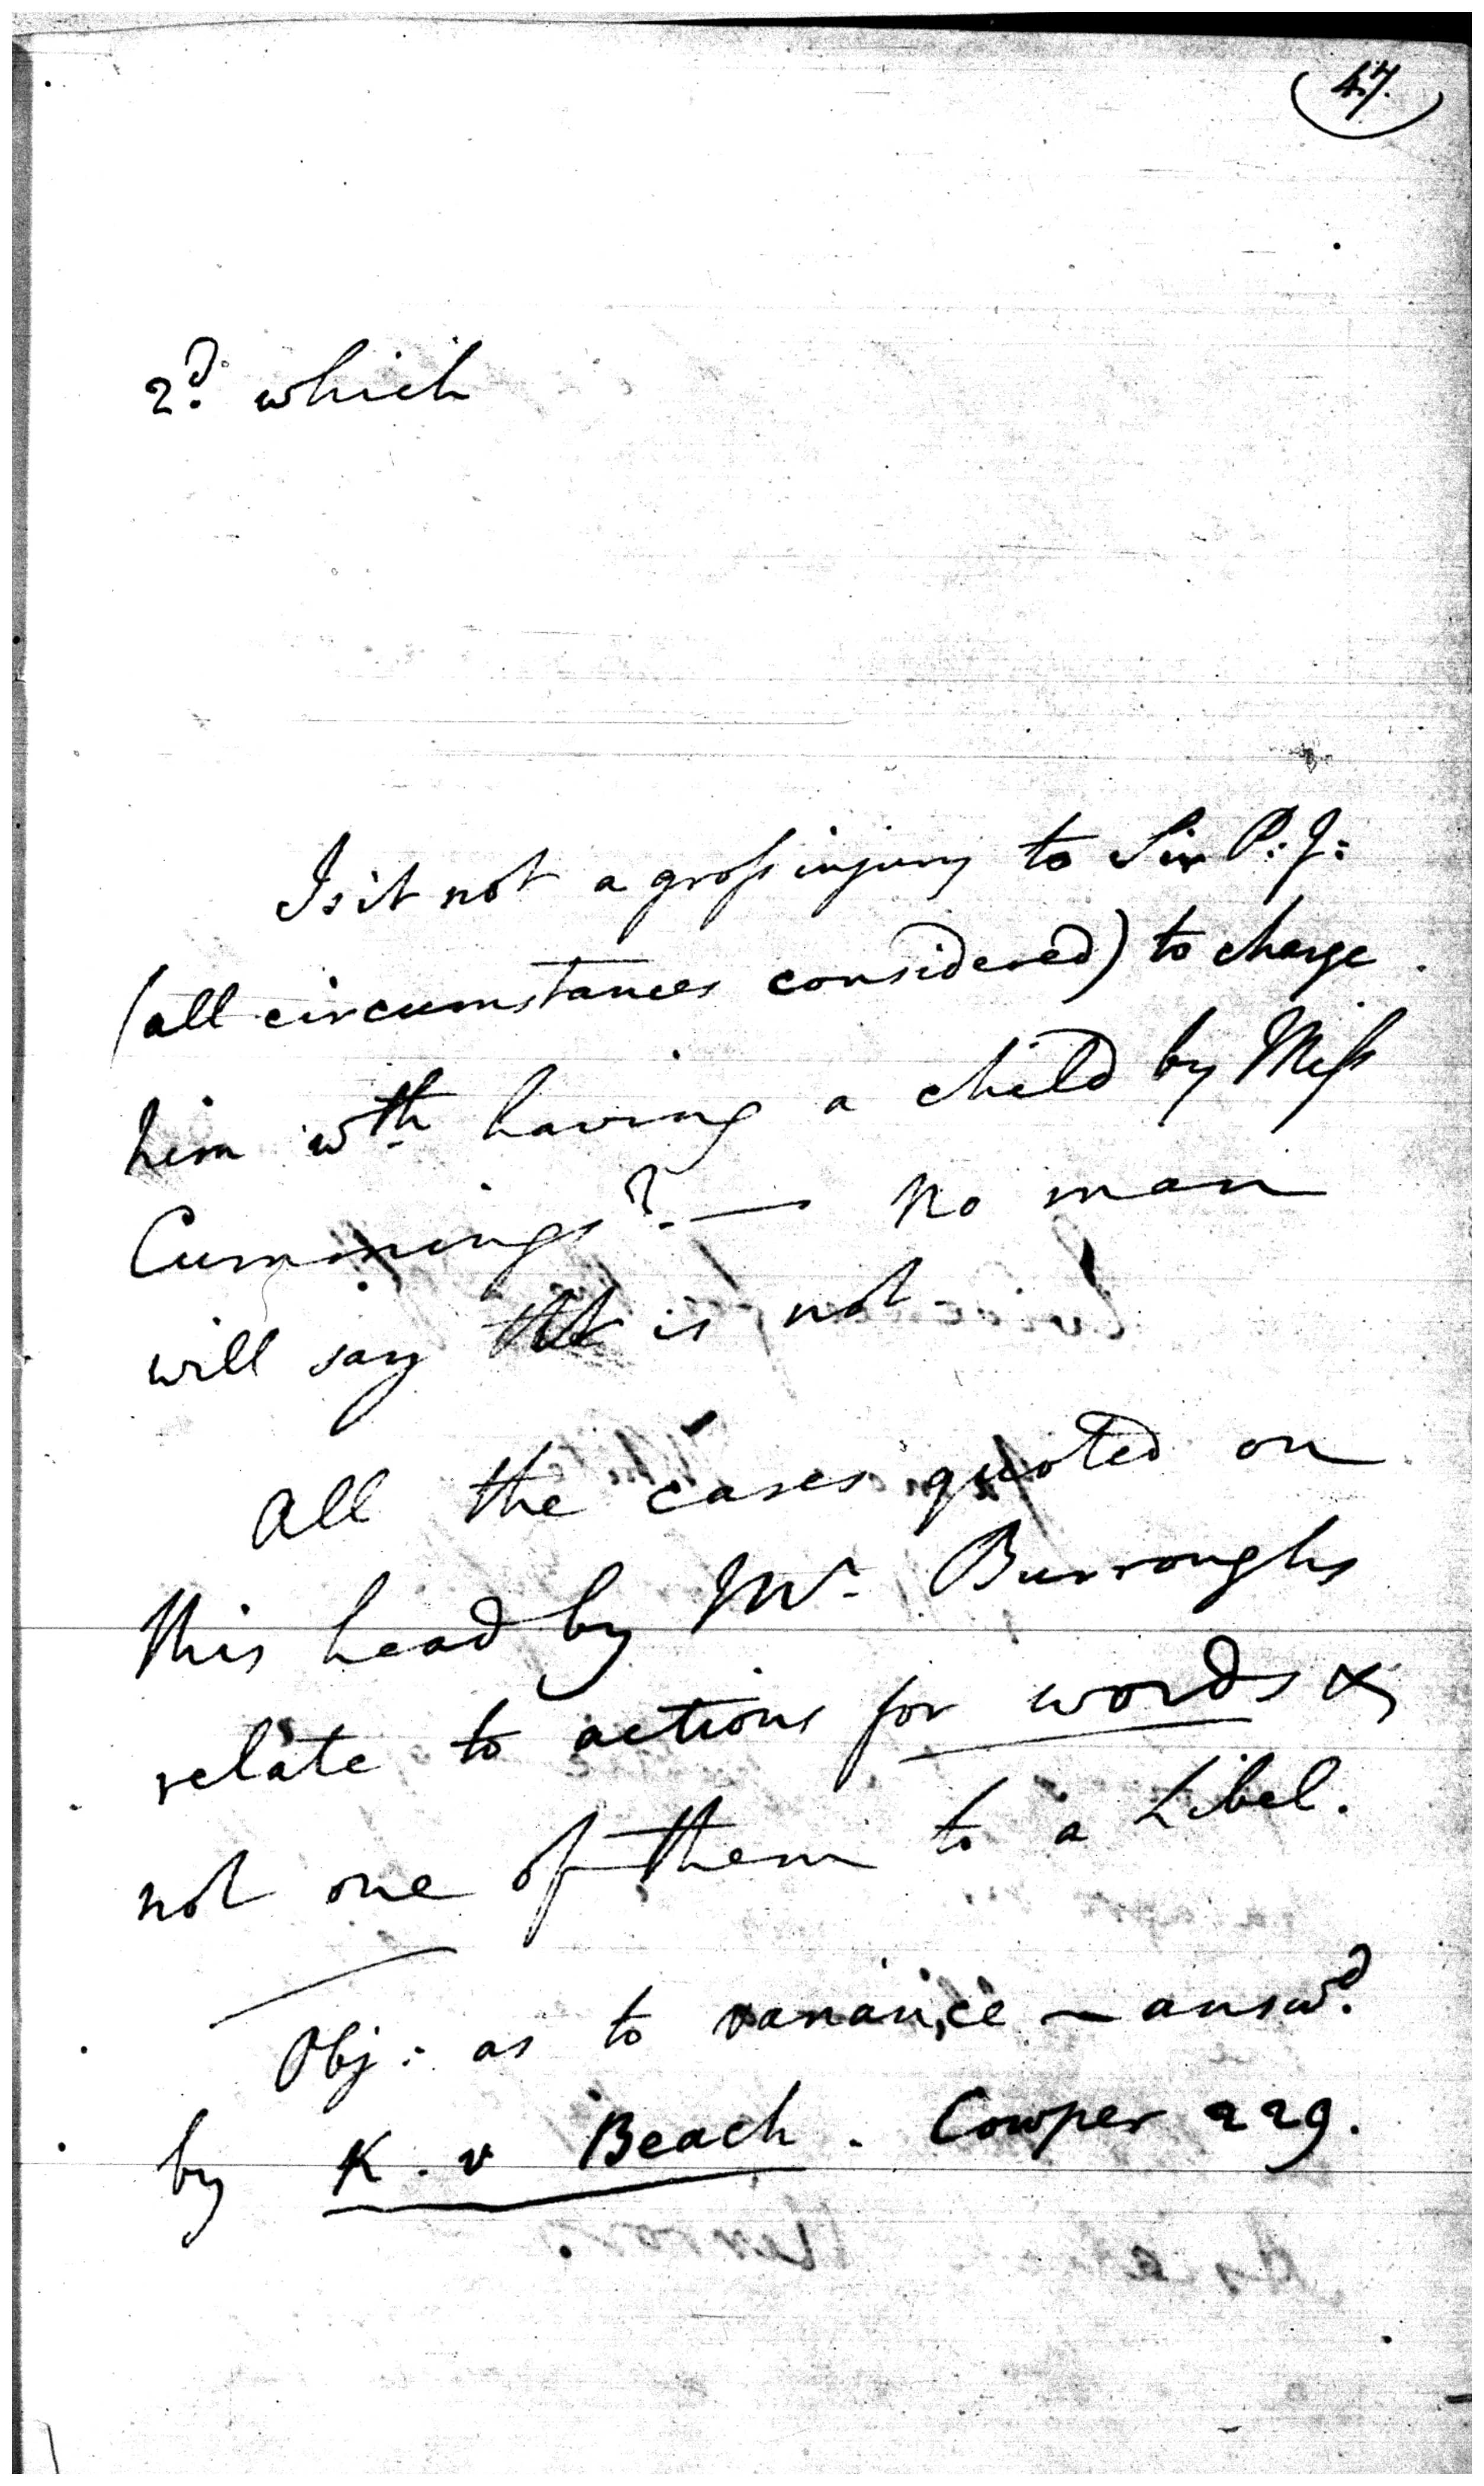 47.
2d. which
Is it not a gross injury to Sir P: J:
(all circumstances considered) to charge
him wth having a child by Miss
Cummings? — No man
will say tht is not.
All the cases quoted on
this head by Mr. Burroughs
relate to actions for words &
not one of them to a Libel.
Obj: as to variance — answd.
by K. v Beach. Cowper 229.